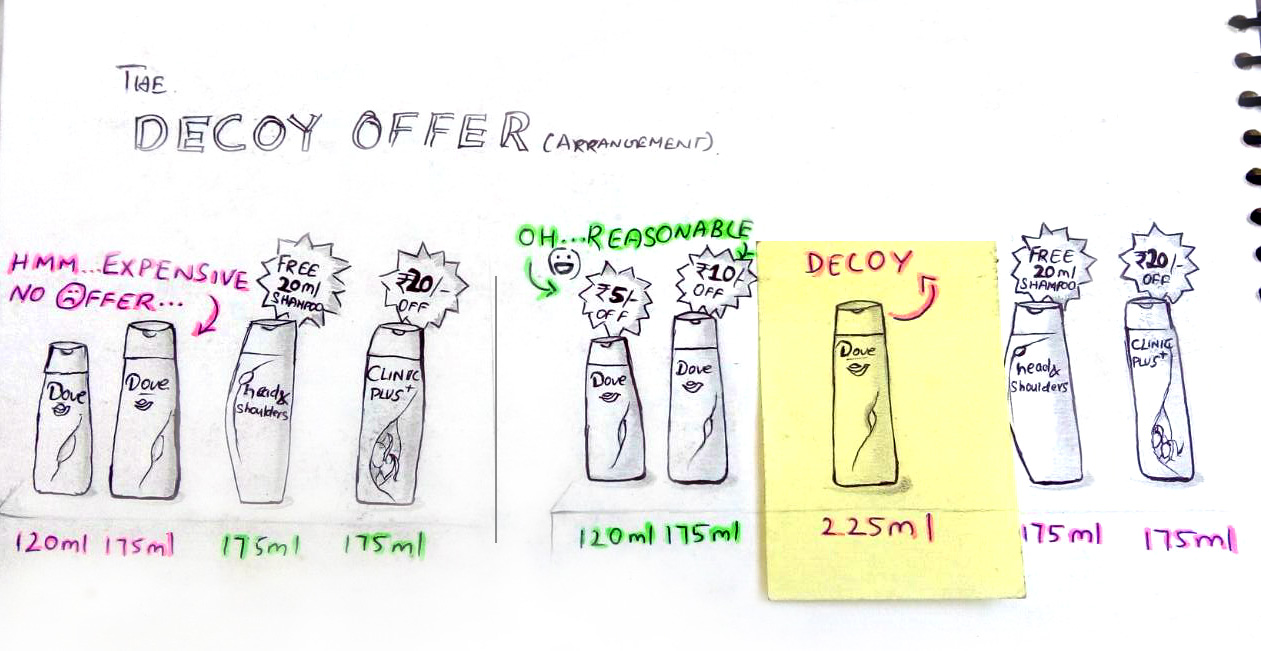 THE
DECOY OFFER (ARRANGEMENT)
HMM...EXPENSIVE
NO OFFER...
FREE
20ml
SHAMPOO
₹20/-
OFF
Dove
Dove
head&
shoulders
CLINIC
PLUS+
120ml 175ml 175ml 175ml
OH...REASONABLE
₹5/-
OFF
₹10/-
OFF
Dove
Dove
DECOY
Dove
FREE
20ml
SHAMPOO
₹20/-
OFF
head&
shoulders
CLINIC
PLUS+
120ml 175ml 225ml 175ml 175ml